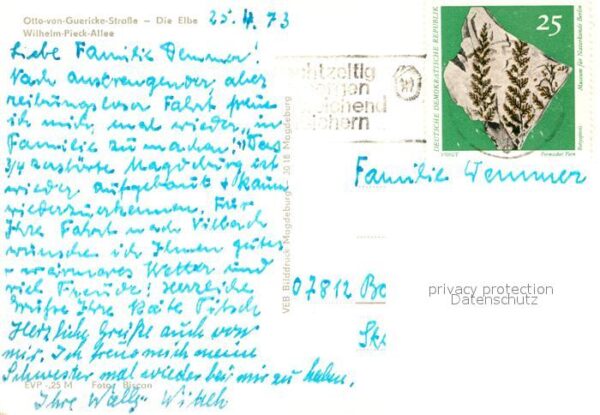 Otto-von-Guericke-Straße – Die Elbe
Wilhelm-Pieck-Allee
25.4.73
Liebe Familie Wemmer!
Nach anstrengender, aber
reibungsloser Fahrt freue
ich mich, mal wieder „in
Familie zu machen!" Das
3/4 zerstörte Magdeburg ist
wieder aufgebaut + kaum
wiederzuerkennen. Für
Ihre Fahrt nach
wünsche ich Ihnen gutes
wärmeres Wetter und
viel Freude! Herzliche
Grüße Ihre Käte
Herzliche Grüße auch von
mir. Ich freue mich meine
Schwester mal wieder bei mir zu haben.
Ihre Wally
EVP -.25 M Foto: Biscan
VEB Bilddruck Magdeburg 30 18 Magdeburg
DEUTSCHE DEMOKRATISCHE REPUBLIK
25
Museum für Naturkunde Berlin
Familie Wemmer
07812 Be
privacy protection
Datenschutz